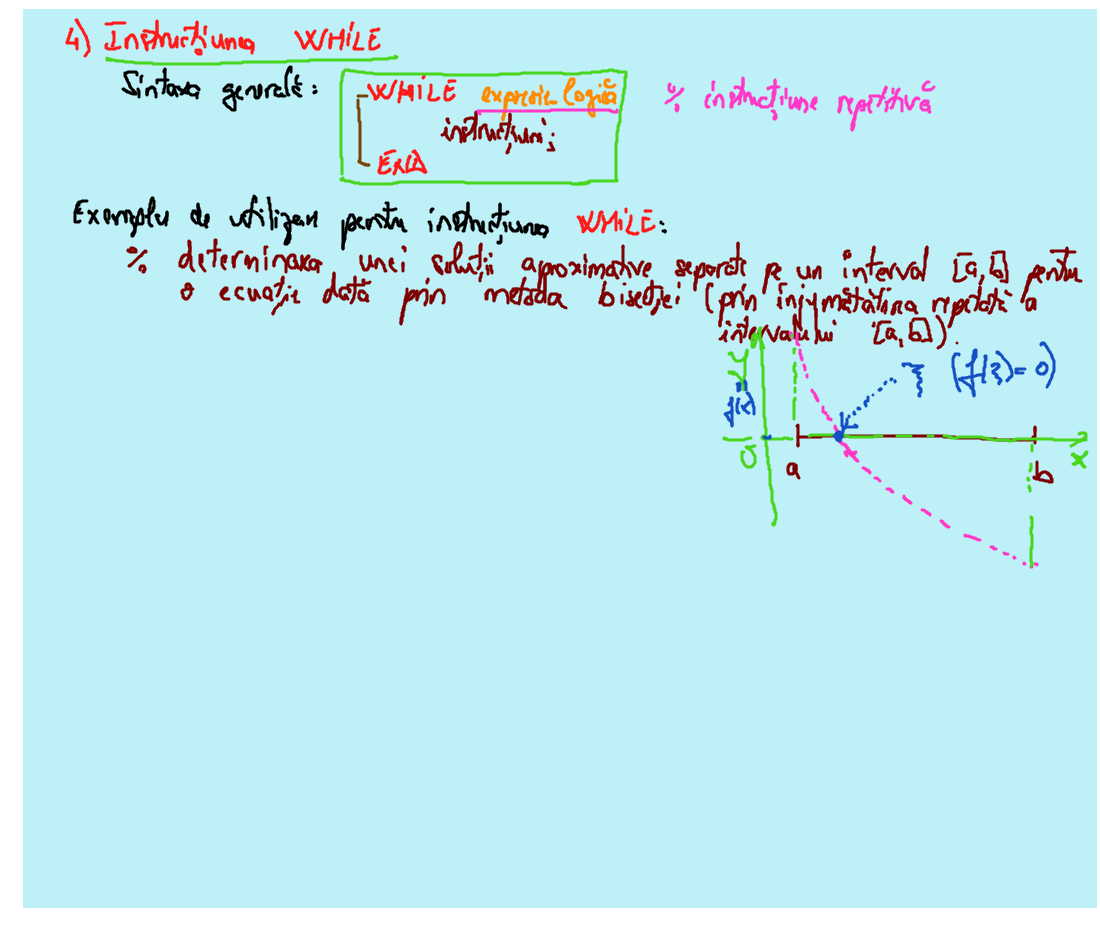 4) Instrucțiunea WHILE
Sintaxa generală:
WHILE expresie logică % instrucțiune repetitivă
instrucțiuni;
END
Exemplu de utilizare pentru instrucțiunea WHILE:
% determinarea unei soluții aproximative separate pe un interval [a,b] pentru
o ecuație dată prin metoda bisecției (prin înjumătățirea repetată a
intervalului [a,b]).
y
f(x)
ξ (f(ξ)=0)
O
a
b
x